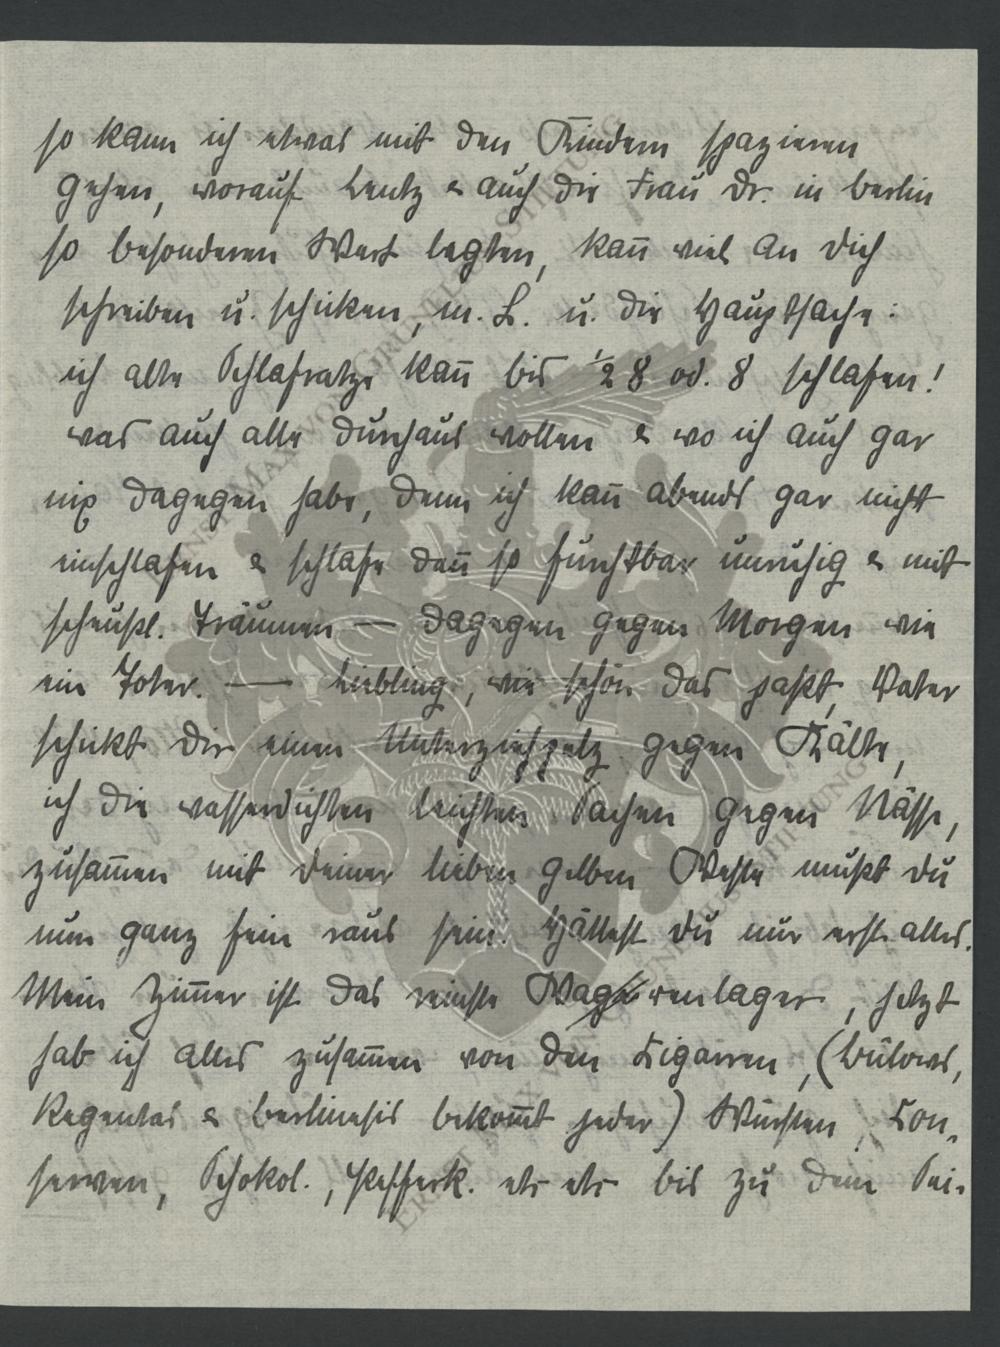 so kann ich etwas mit den Kindern spazieren
gehen, worauf Lentz & auch die Frau Dr. in Berlin
so besonderen Wert legten, kan̄ viel an Dich
schreiben u. schicken, m. L. u. die Hauptsache:
ich alte Schlafratze kan̄ bis ½ 8 od. 8 schlafen!
was auch alle durchaus wollen & wo ich auch gar
nix dagegen habe, denn ich kan̄ abends gar nicht
einschlafen & schlafe dan̄ so furchtbar unruhig & mit
scheußl. Träumen — dagegen gegen Morgen wie
ein Toter. — Liebling, wie schön das paßt, Vater
schickt Dir einen Unterziehpelz gegen Kälte,
ich die wasserdichten leichten Sachen gegen Nässe,
zusam̄en mit Deiner lieben gelben Weste mußt Du
nun ganz fein raus sein. Hättest Du nur erst alles.
Mein Zim̄er ist das reinste Warenlager, jetzt
hab ich alles zusam̄en von den Zigarren, (Bülows,
Regentas & Berlinesis bekom̄t jeder) Würsten, Con-
serven, Schokol., Pfefferk. etc etc bis zu dem Sei-
ERNST MAX VON GRUNELIUS-STIFTUNG
ERNST MAX VON GRUNELIUS-STIFTUNG